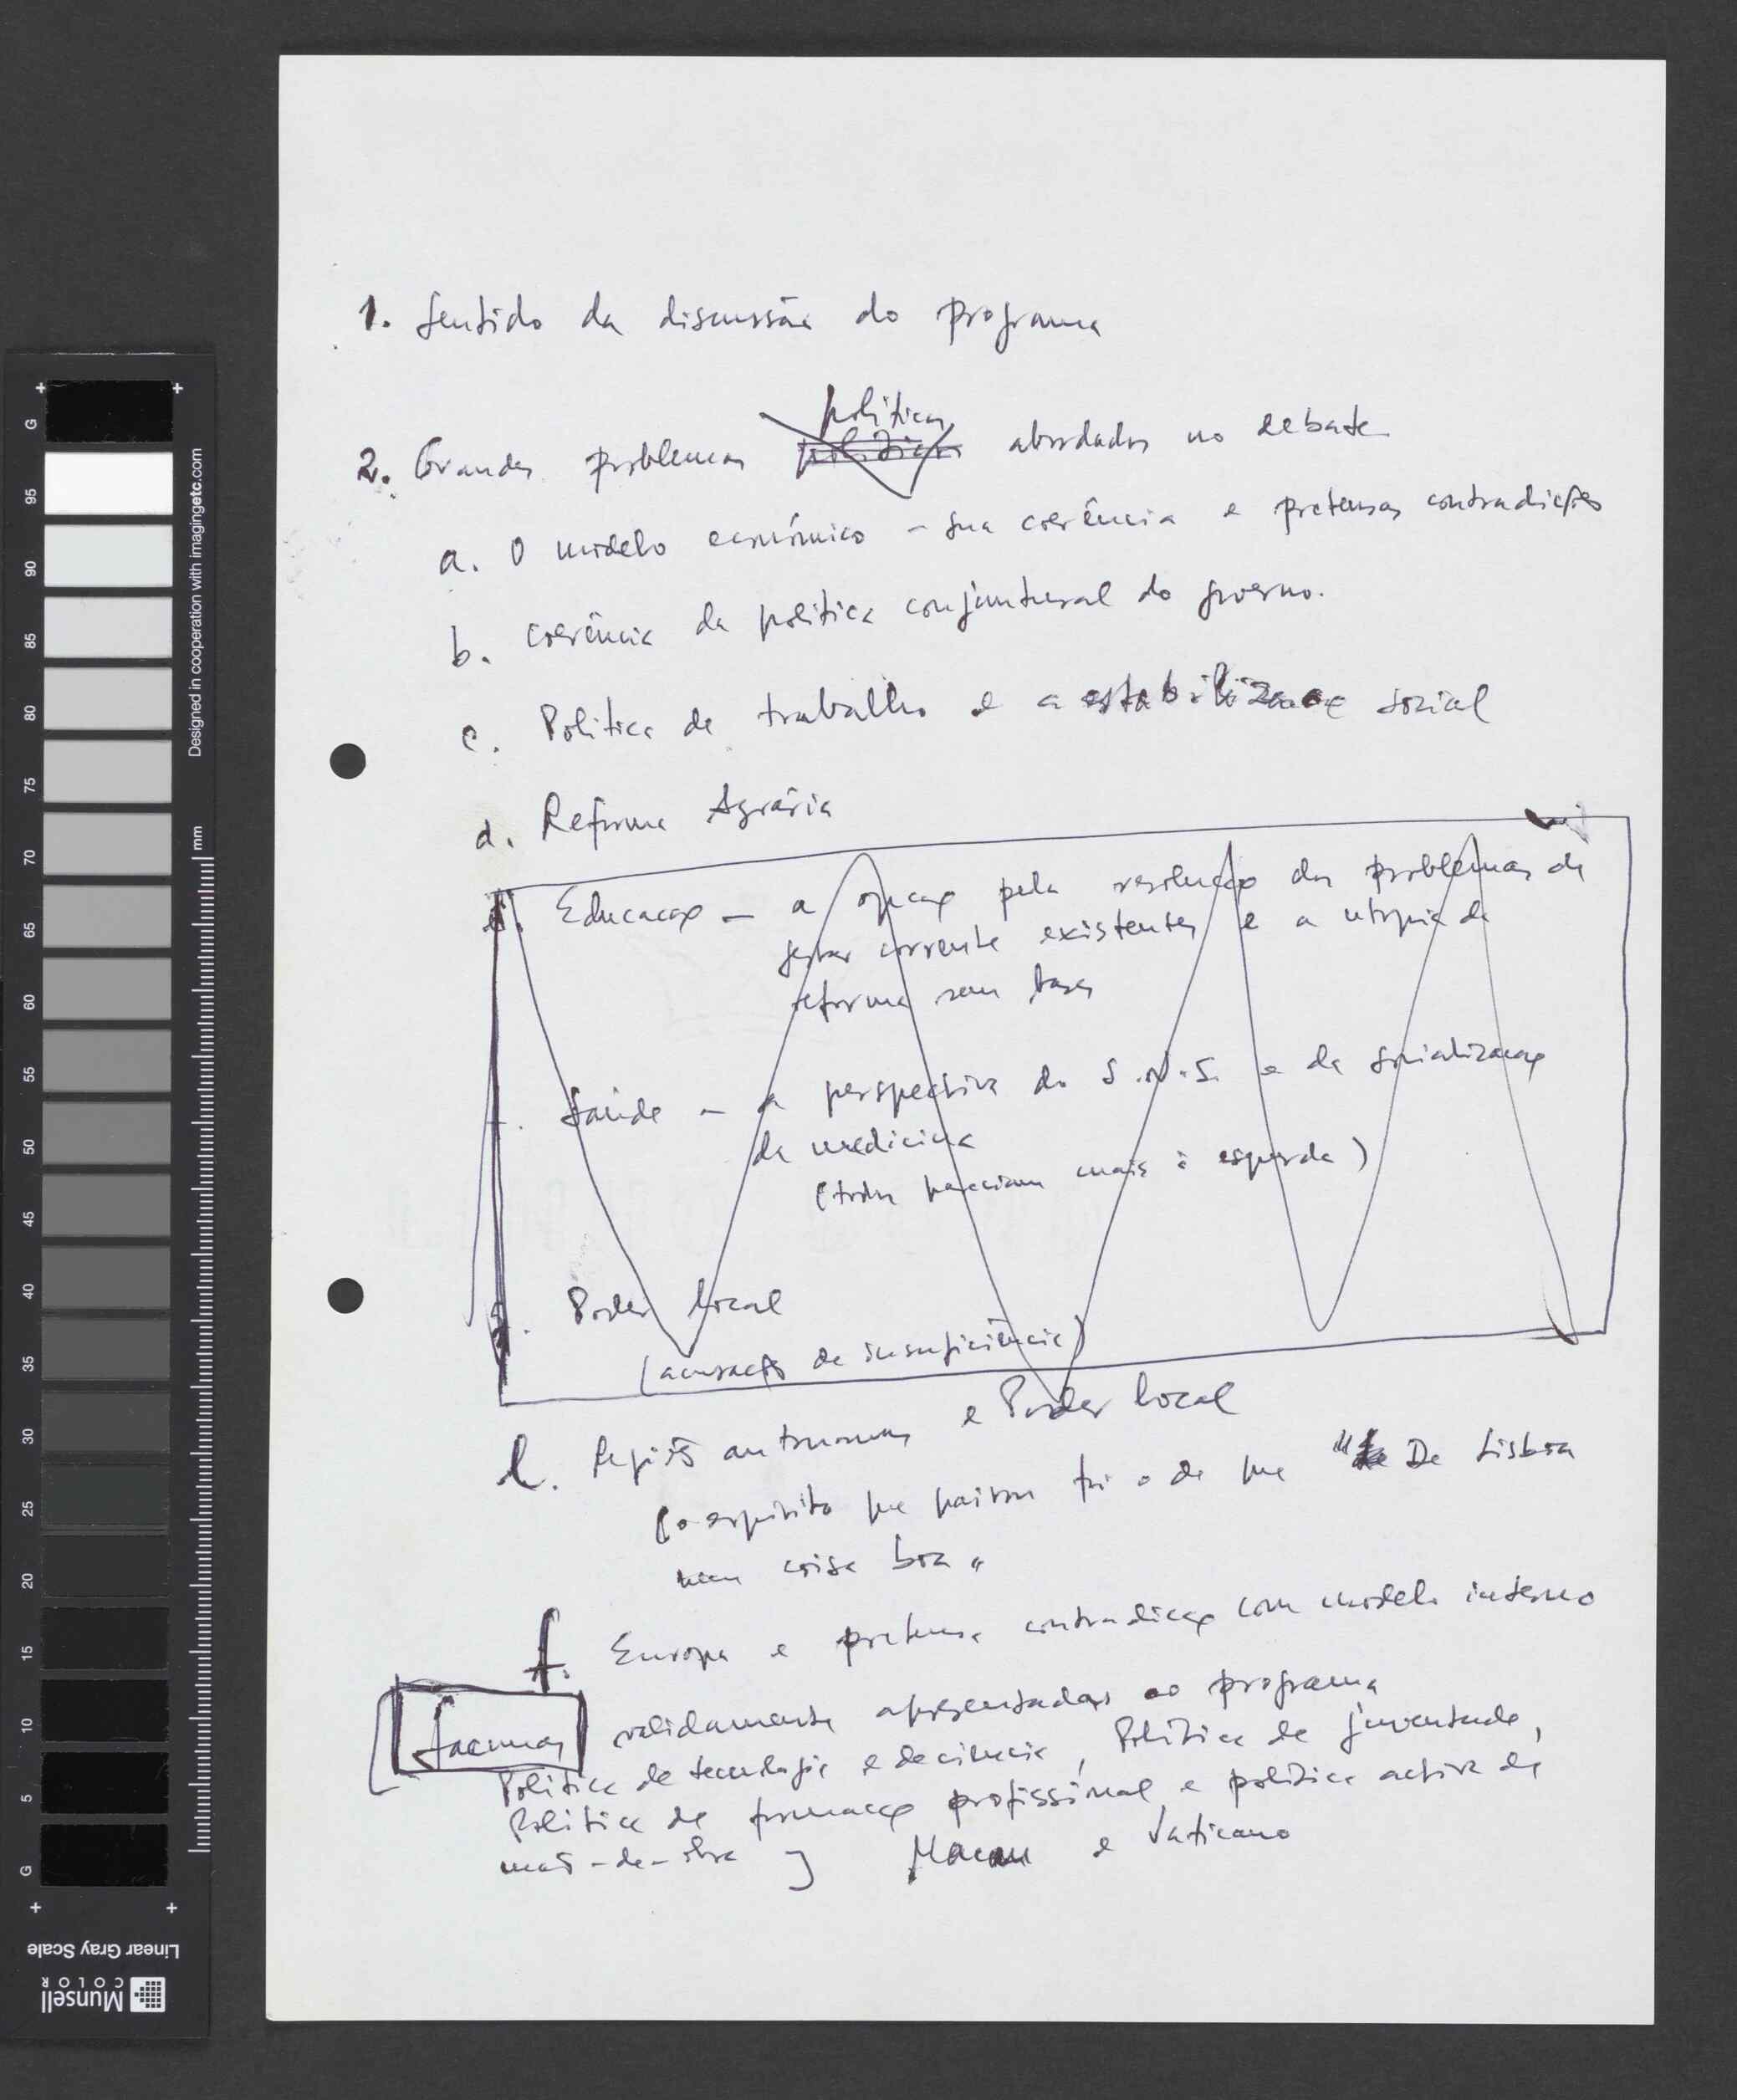 1. Sentido da discussão do programa
políticos
2. Grandes problemas políticos abordados no debate
a. O modelo económico - sua coerência e pretensas contradições
b. Coerência da política conjuntural do governo.
c. Política de trabalho e a estabilização social
d. Reforma Agrária
Educação — a opção pela resolução dos problemas de
gestão corrente existentes e a utopia da
reforma sem bases
Saúde — a perspectiva do S.N.S. e da socialização
da medicina
(todos pareciam mais à esquerda)
Poder local
(acusações de insuficiência)
e. Regiões autónomas e Poder local
(o espírito que pairou foi o de que " De Lisboa
nem coisa boa "
f. Europa e pretensa contradição com modelo interno
[Lacunas validamente apresentadas ao programa
Política de tecnologia e de ciência, Política de juventude,
Política de formação profissional e política activa de
mão-de-obra] Macau e Vaticano
G 95 90 85 80 75 70 65 60 55 50 45 40 35 30 25 20 15 10 5 G
Designed in cooperation with imagingetc.com
mm
Linear Gray Scale
Munsell
COLOR